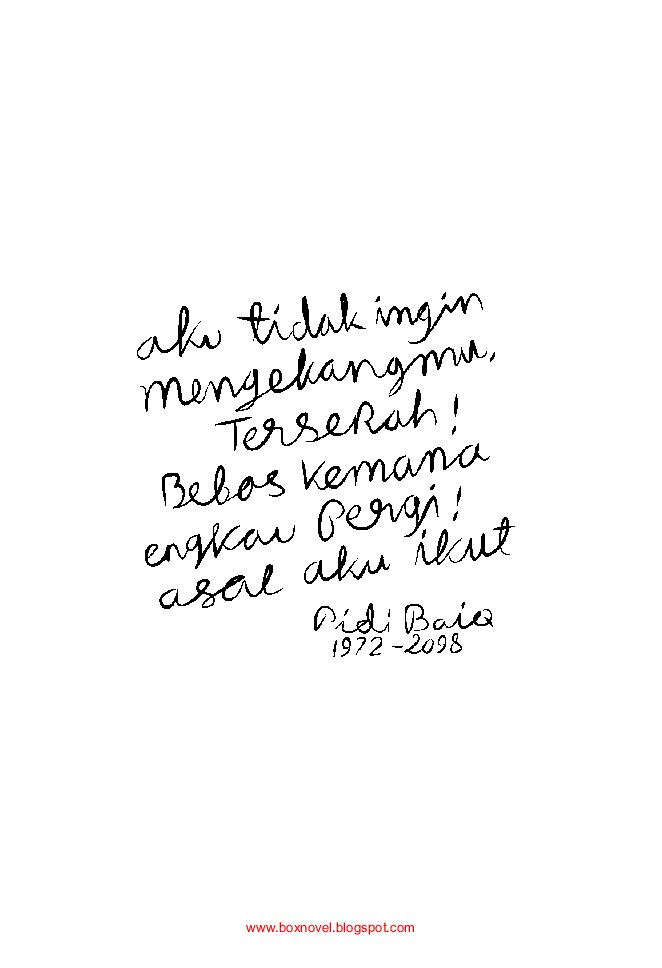 aku tidak ingin
mengekangmu,
Terserah!
Bebas kemana
engkau Pergi!
asal aku ikut
Pidi Baiq
1972-2098
www.boxnovel.blogspot.com